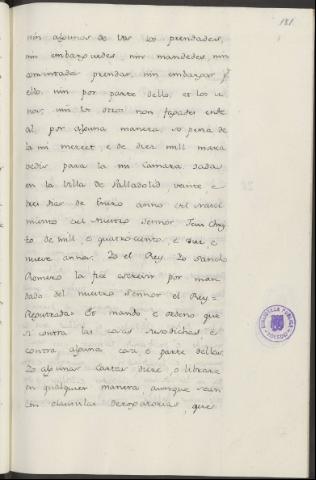 181
nin algunos de vos los prendades,
nin embarguedes, nin mandedes, nin
consintades prendar, nin embargar
ello, nin por parte dello, et los u
nos, nin los otros non fagades ende
al por alguna manera, so pena de
la mi merced, e de diez mill mara
vedis para la mi Camara. dada
en la Villa de Valladolid, veinte, e
tres dias de Enero anno del naci
miento del nuestro Sennor Jesu Chris
to de mill, e quatrocientos, e e
nueve annos. Yo el Rey. Yo Sancho
Romero la fice escrevir por man
dado del nuestro Sennor el Rey =
Registrada = Et mando, e ordeno que
si contra las cosas susodichas e
contra alguna cosa e parte dellas
Yo algunas Cartas diere, o librare
en qualquier manera, aunque sean
con clausulas derogatorias, que
BIBLIOTECA PUBLICA
TOLEDO